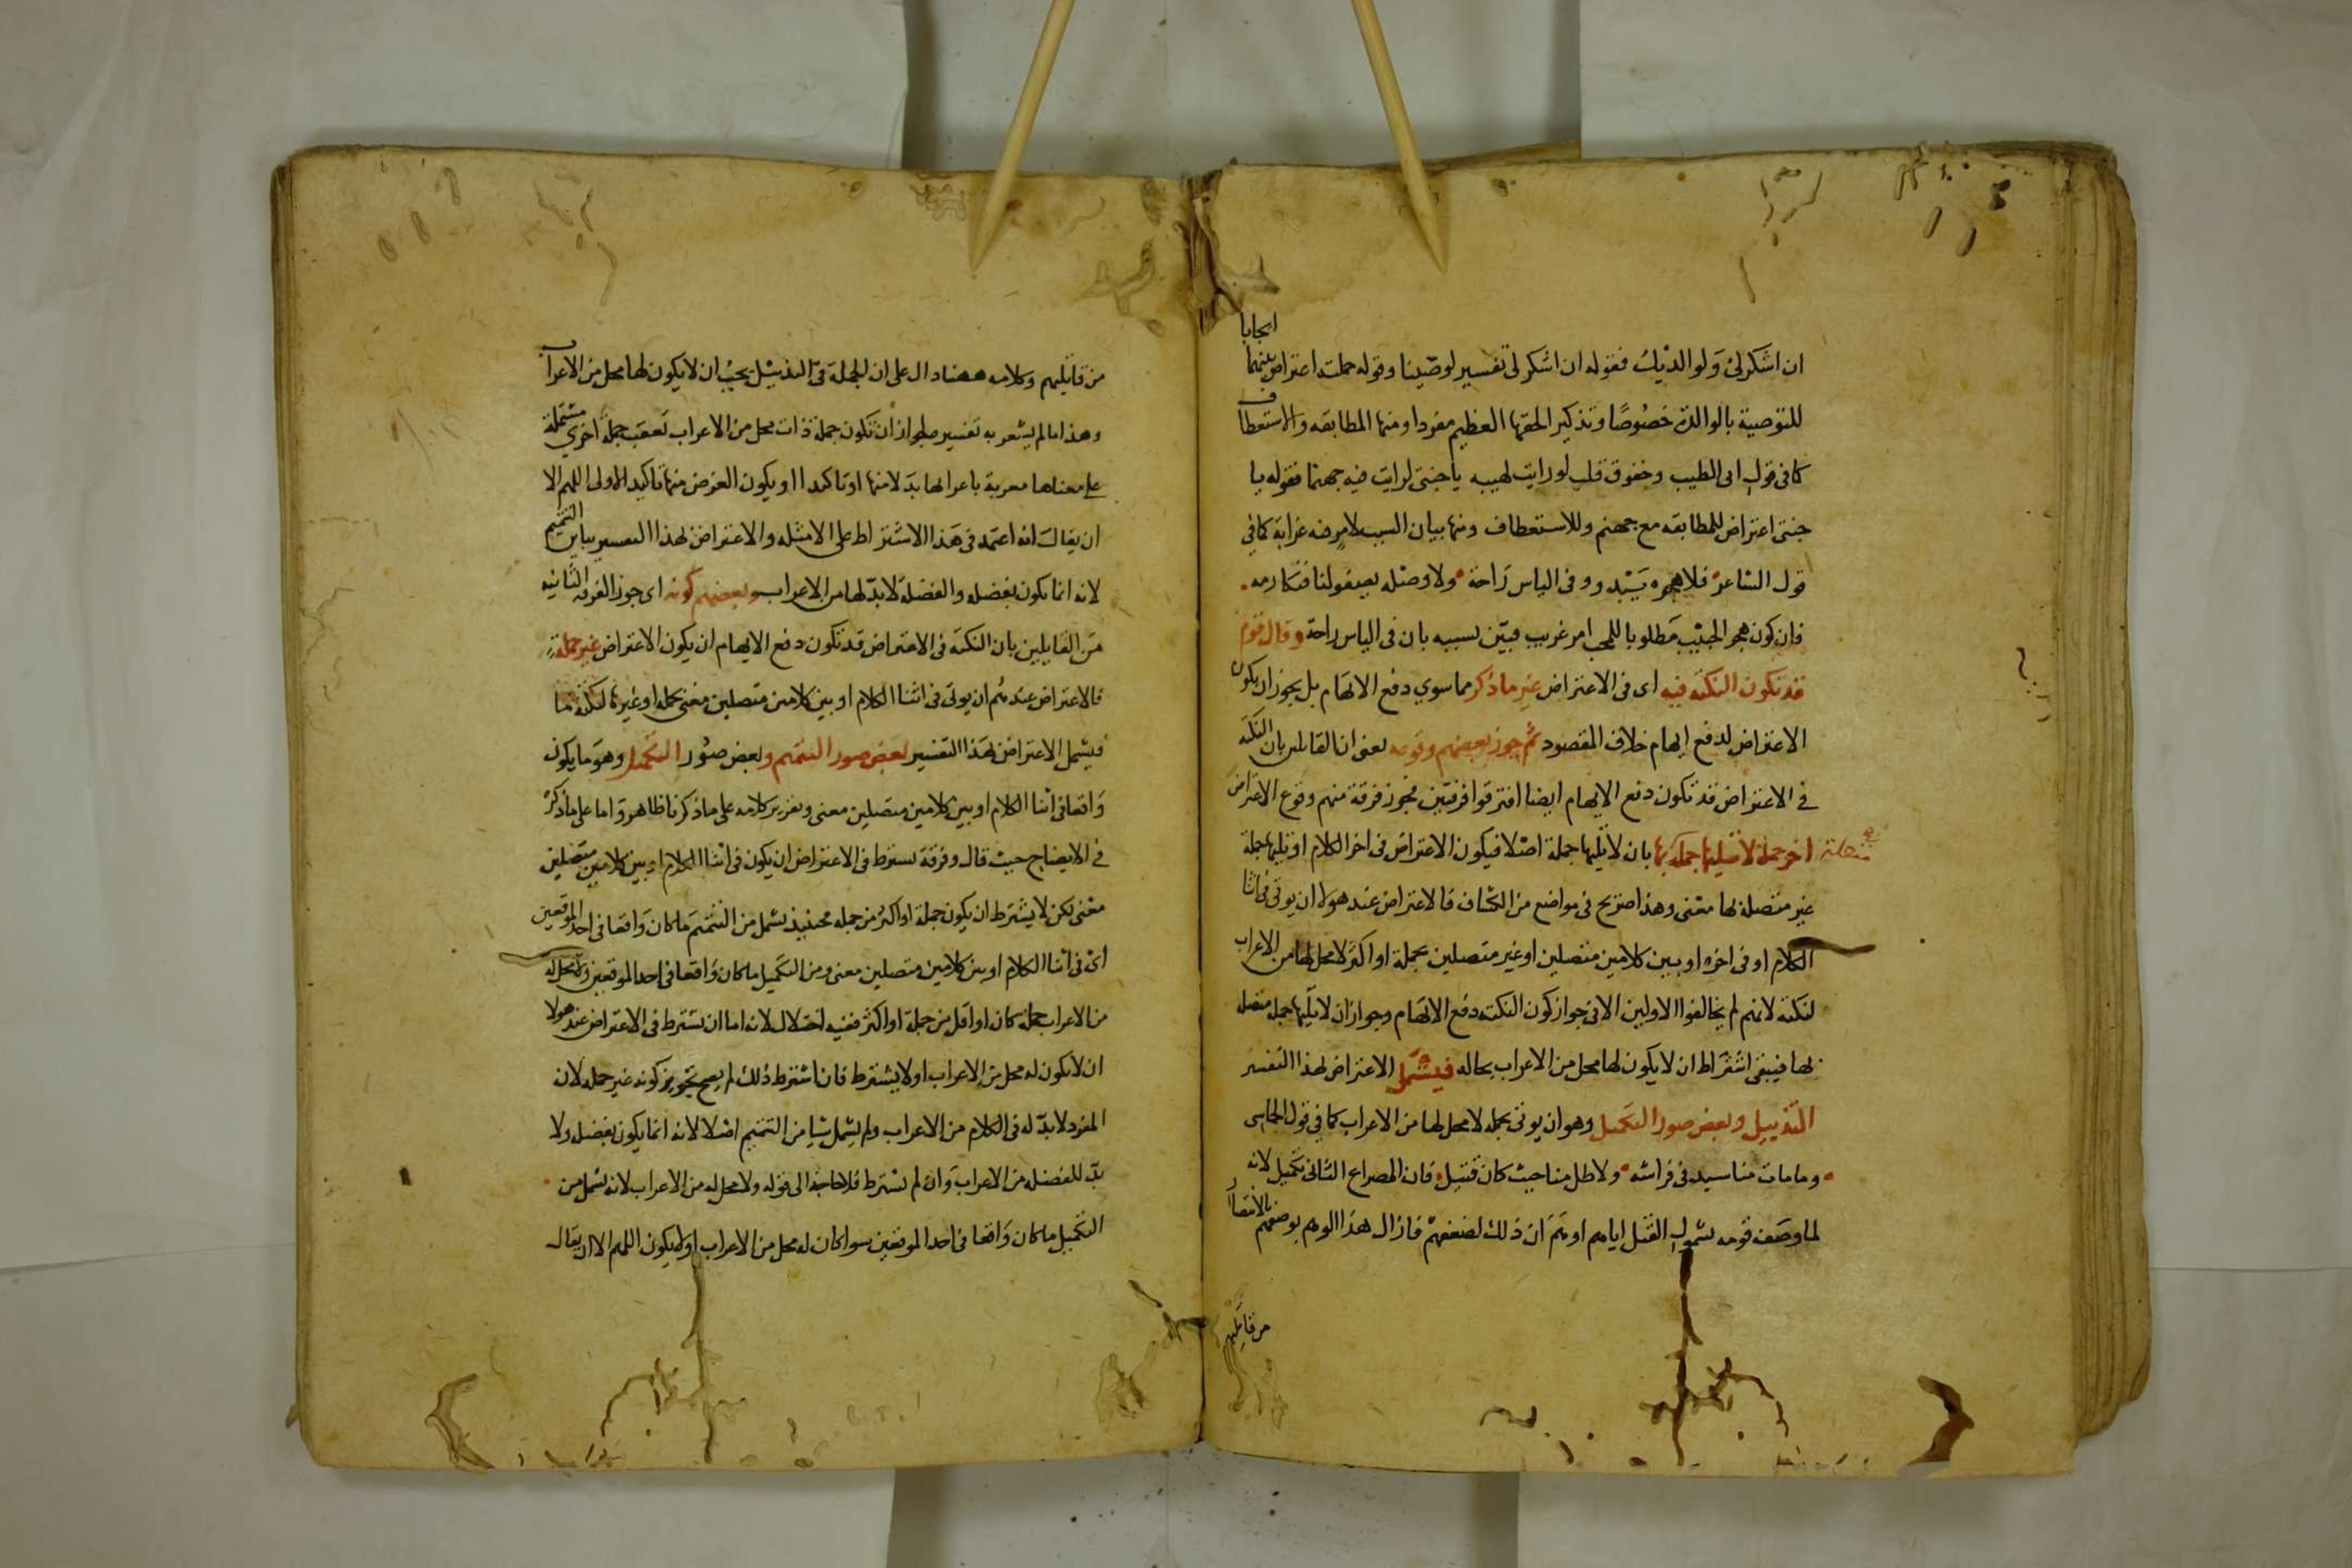 ان اشكر لي ولوالديك فقوله ان اشكر لي تفسير لوصينا وقوله حملته اعتراض بينهما ايجابا
للتوصية بالوالدة خصوصا وتذكير الحقها العظيم مفردا ومنها المطابقه والاستعطاف
كما في قول ابي الطيب وخفوق قلب لو رايت لهيبه يا جنتي لرايت فيه جهنما فقوله يا
جنتي اعتراض للمطابقه مع جهنم وللاستعطاف ومنها بيان السبب لامر فيه غرابة كما في
قول الشاعر فلا هجره يبدو وفي الياس راحة ولا وصله يصفو لنا فنكارمه
فان كون هجر الحبيب مطلوبا للمحب امر غريب فبين سببه بان في الياس راحة وقال قوم
قد تكون النكته فيه اي في الاعتراض غير ما ذكر مما سوي دفع الايهام بل يجوز ان يكون
الاعتراض لدفع ايهام خلاف المقصود ثم جوز بعضهم وقوعه يعني ان القايلين بان النكته
في الاعتراض قد تكون دفع الايهام ايضا افترقوا فرقتين فجوز فرقة منهم وقوع الاعتراض
اخر جملة لا تليها جملة متصلة بها بان لا تليها جملة اصلا فيكون الاعتراض في اخر الكلام او تليها جملة
غير متصلة لها معنى وهذا صريح في مواضع من الكشاف فالاعتراض عند هولاء ان يوتى في اثنا
الكلام او في اخره او بين كلامين متصلين او غير متصلين بجملة او اكثر لا محل لها من الاعراب
لنكته لانهم لم يخالفوا الاولين الا في جواز كون النكته دفع الايهام وجواز ان لا تليها جملة متصله
بها فيبقى اشتراط ان لا يكون لها محل من الاعراب بحاله فيشمل الاعتراض لهذا التفسير
التذييل وبعض صور التكميل وهو ان يوتى بجمله لا محل لها من الاعراب كما في قول الحماسي
وما مات منا سيد في فراشه ولا طل منا حيث كان قتيل فان المصراع الثاني تكميل لانه
لما وصف قومه بشمول القتل اياهم اوهم ان ذلك لضعفهم فازال هذا الوهم بوصفهم بالانتصار
من قاتليهم
من قاتليهم وكلامه ههنا دال على ان الجملة في التذييل يجب ان لا يكون لها محل من الاعراب
وهذا مما لم يشعر به تفسيره لجواز ان تكون جملة ذات محل من الاعراب تعقب جملة اخرى مشتملة
على معناها معربة باعرابها بدلا منها او تاكيدا او يكون الغرض منها تاكيد الاولى اللهم الا
ان يقال انه اعتمد في هذا الاشتراط على الامثله والاعتراض لهذا التفسير يباين التتميم
لانه انما يكون بفضله والفضله لا بد لها من الاعراب وبعضهم كونه اي جوز الفرقه الثانيه
من القايلين بان النكته في الاعتراض قد تكون دفع الايهام ان يكون الاعتراض غير جملة
فالاعتراض عندهم ان يوتى في اثنا الكلام او بين كلامين متصلين معنى بجمله او غيرها لنكتة ما
فيشمل الاعتراض لهذا التفسير بعض صور التتميم وبعض صور التكميل وهو ما يكون
واقعا في اثنا الكلام او بين كلامين متصلين معنى وتقرير كلامه على ما ذكرنا ظاهر واما على ما ذكر
في الايضاح حيث قال وفرقة تشترط في الاعتراض ان يكون في اثنا الكلام او بين كلامين متصلين
معنى لكن لا يشترط ان يكون جملة او اكثر من جمله فحينيذ يشمل من التتميم ما كان واقعا في احد الموقعين
اي في اثنا الكلام او بين كلامين متصلين معنى ومن التكميل ما كان واقعا في احد الموقعين ولا محل له
من الاعراب جملة كان او اقل من جملة او اكثر ففيه اختلال لانه اما ان يشترط في الاعتراض عند هولا
ان لا يكون له محل من الاعراب او لا يشترط فان اشترط ذلك لم يصح تجويز كونه غير جمله لان
المفرد لا بد له في الكلام من الاعراب ولم يشمل شيا من التتميم اصلا لانه انما يكون بفضله ولا
بد للفضله من الاعراب وان لم يشترط فلا حاجة الى قوله ولا محل له من الاعراب لانه يشمل من
التكميل ما كان واقعا في احد الموقعين سواء كان له محل من الاعراب او لا يكون اللهم الا ان يقال